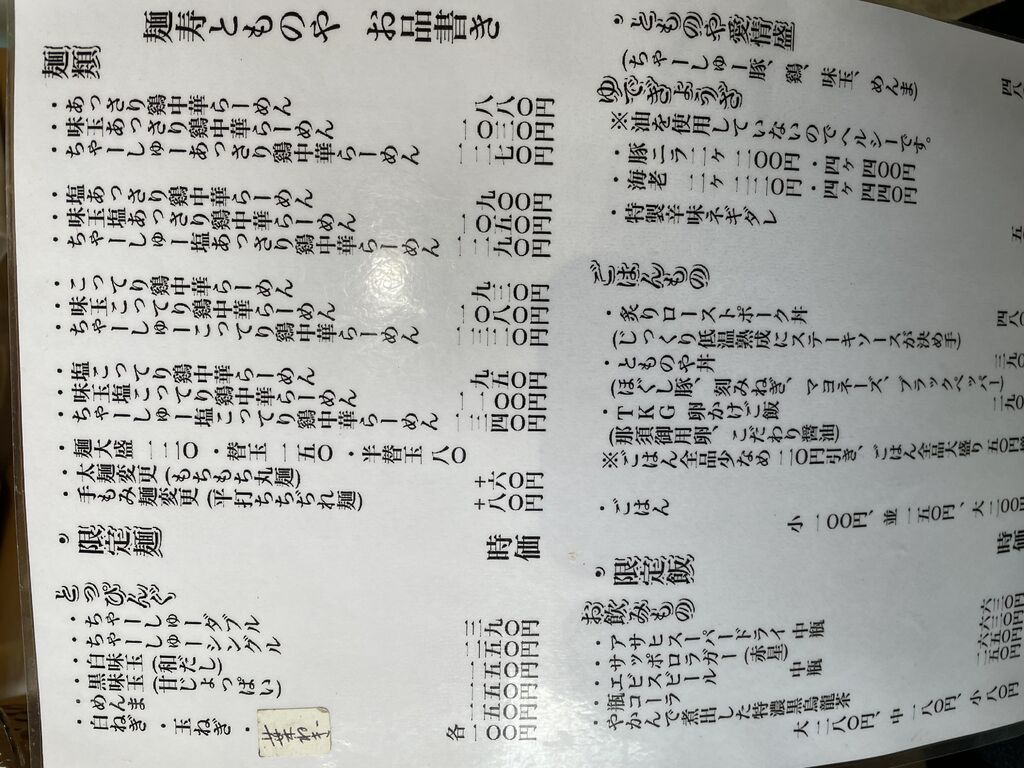 麺寿とものや　お品書き
麺類
・あっさり鶏中華らーめん　八八〇円
・味玉あっさり鶏中華らーめん　一〇三〇円
・ちゃーしゅーあっさり鶏中華らーめん　一一七〇円
・塩あっさり鶏中華らーめん　九〇〇円
・味玉塩あっさり鶏中華らーめん　一〇五〇円
・ちゃーしゅー塩あっさり鶏中華らーめん　一一九〇円
・こってり鶏中華らーめん　九三〇円
・味玉こってり鶏中華らーめん　一〇八〇円
・ちゃーしゅーこってり鶏中華らーめん　一二二〇円
・塩こってり鶏中華らーめん　九五〇円
・味玉塩こってり鶏中華らーめん　一一〇〇円
・ちゃーしゅー塩こってり鶏中華らーめん　一二四〇円
・麺大盛 一二〇 ・替玉 一五〇 ・半替玉 八〇
・太麺変更（もちもち丸麺）　＋六〇円
・手もみ麺変更（平打ちちぢれ麺）　＋八〇円
・限定麺　時価
とっぴんぐ
・ちゃーしゅーダブル　二九〇円
・ちゃーしゅーシングル　一五〇円
・白味玉（和だし）　一五〇円
・黒味玉（甘じょっぱい）　一五〇円
・めんま　一五〇円
・白ねぎ　・玉ねぎ　・　各一〇〇円
・とものや愛情盛　四八
（ちゃーしゅー豚、鶏、味玉、めんま）
ゆでぎょうざ
※油を使用していないのでヘルシーです。
・豚ニラ 二ヶ 二〇〇円 ・四ヶ 四〇〇円
・海老 二ヶ 二二〇円 ・四ヶ 四四〇円
・特製辛味ネギダレ　五
ごはんもの
・炙りローストポーク丼　四八
（じっくり低温熟成にステーキソースが決め手）
・とものや丼　三九〇
（ほぐし豚、刻みねぎ、マヨネーズ、ブラックペッパー）
・ＴＫＧ 卵かけご飯　二九〇
（那須御用卵、こだわり醤油）
※ごはん全品少なめ 二〇円引き、ごはん全品大盛り 五〇円
・ごはん
小 一〇〇円、並 一五〇円、大 二〇〇円
・限定飯　時価
お飲みもの
・アサヒスーパードライ 中瓶
・サッポロラガー（赤星）
・エビスビール 中瓶
・瓶コーラ　二五〇円
やかんで煮出した特濃黒烏龍茶
大 二八〇円、中 一八〇円、小 八〇円